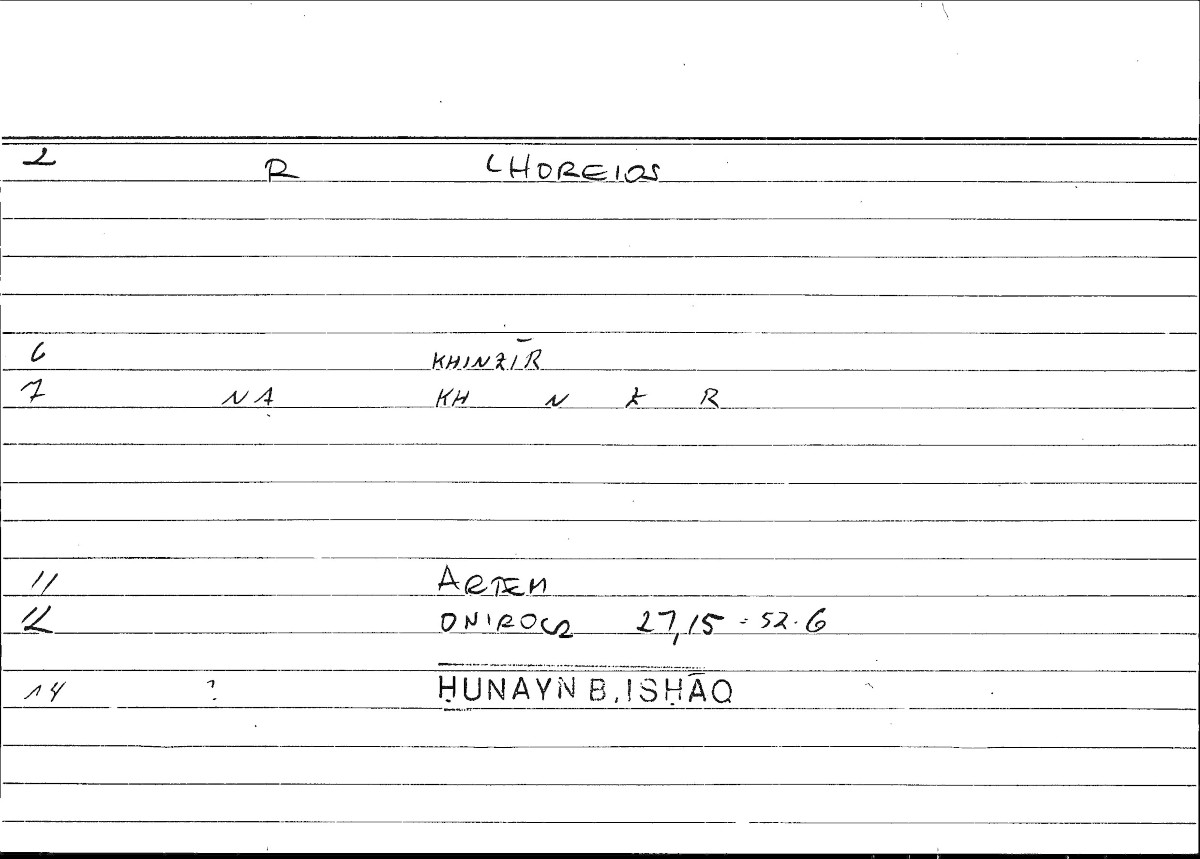 2 R CHOREIOS
6 KHINZĪR
7 NA KH N Z R
11 ARTEM
12 ONIROCR 27,15 = 52.6
14 ? ḤUNAYN B. ISḤĀQ